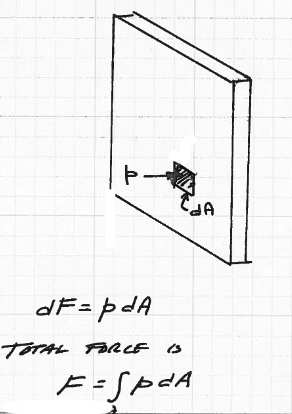 p
dA
dF = p dA
TOTAL FORCE IS
F = ∫ p dA